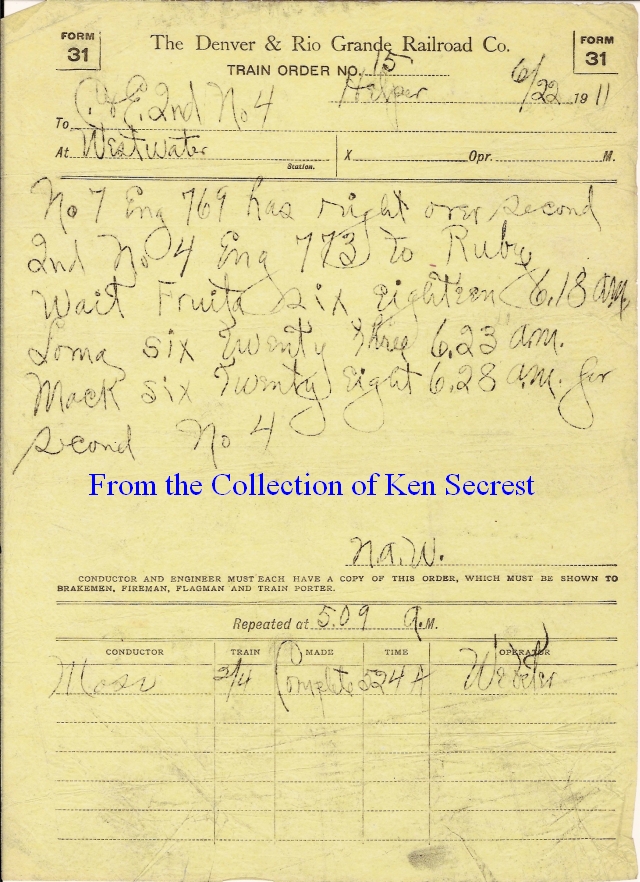 FORM 31
The Denver & Rio Grande Railroad Co.
FORM 31
TRAIN ORDER NO. 15
Helper 6/22 1911
To C&E 2nd No 4
At Westwater Station. X Opr. M.
No 7 Eng 769 has right over second
2nd No 4 Eng 773 to Ruby
Wait Fruita six eighteen 6.18 am.
Loma six twenty three 6.23 am.
Mack six twenty eight 6.28 am. for
second No 4
From the Collection of Ken Secrest
CONDUCTOR AND ENGINEER MUST EACH HAVE A COPY OF THIS ORDER, WHICH MUST BE SHOWN TO
BRAKEMEN, FIREMAN, FLAGMAN AND TRAIN PORTER.
Repeated at 5.09 A.M.
CONDUCTOR TRAIN MADE TIME OPERATOR
2/4 Complete 524 A